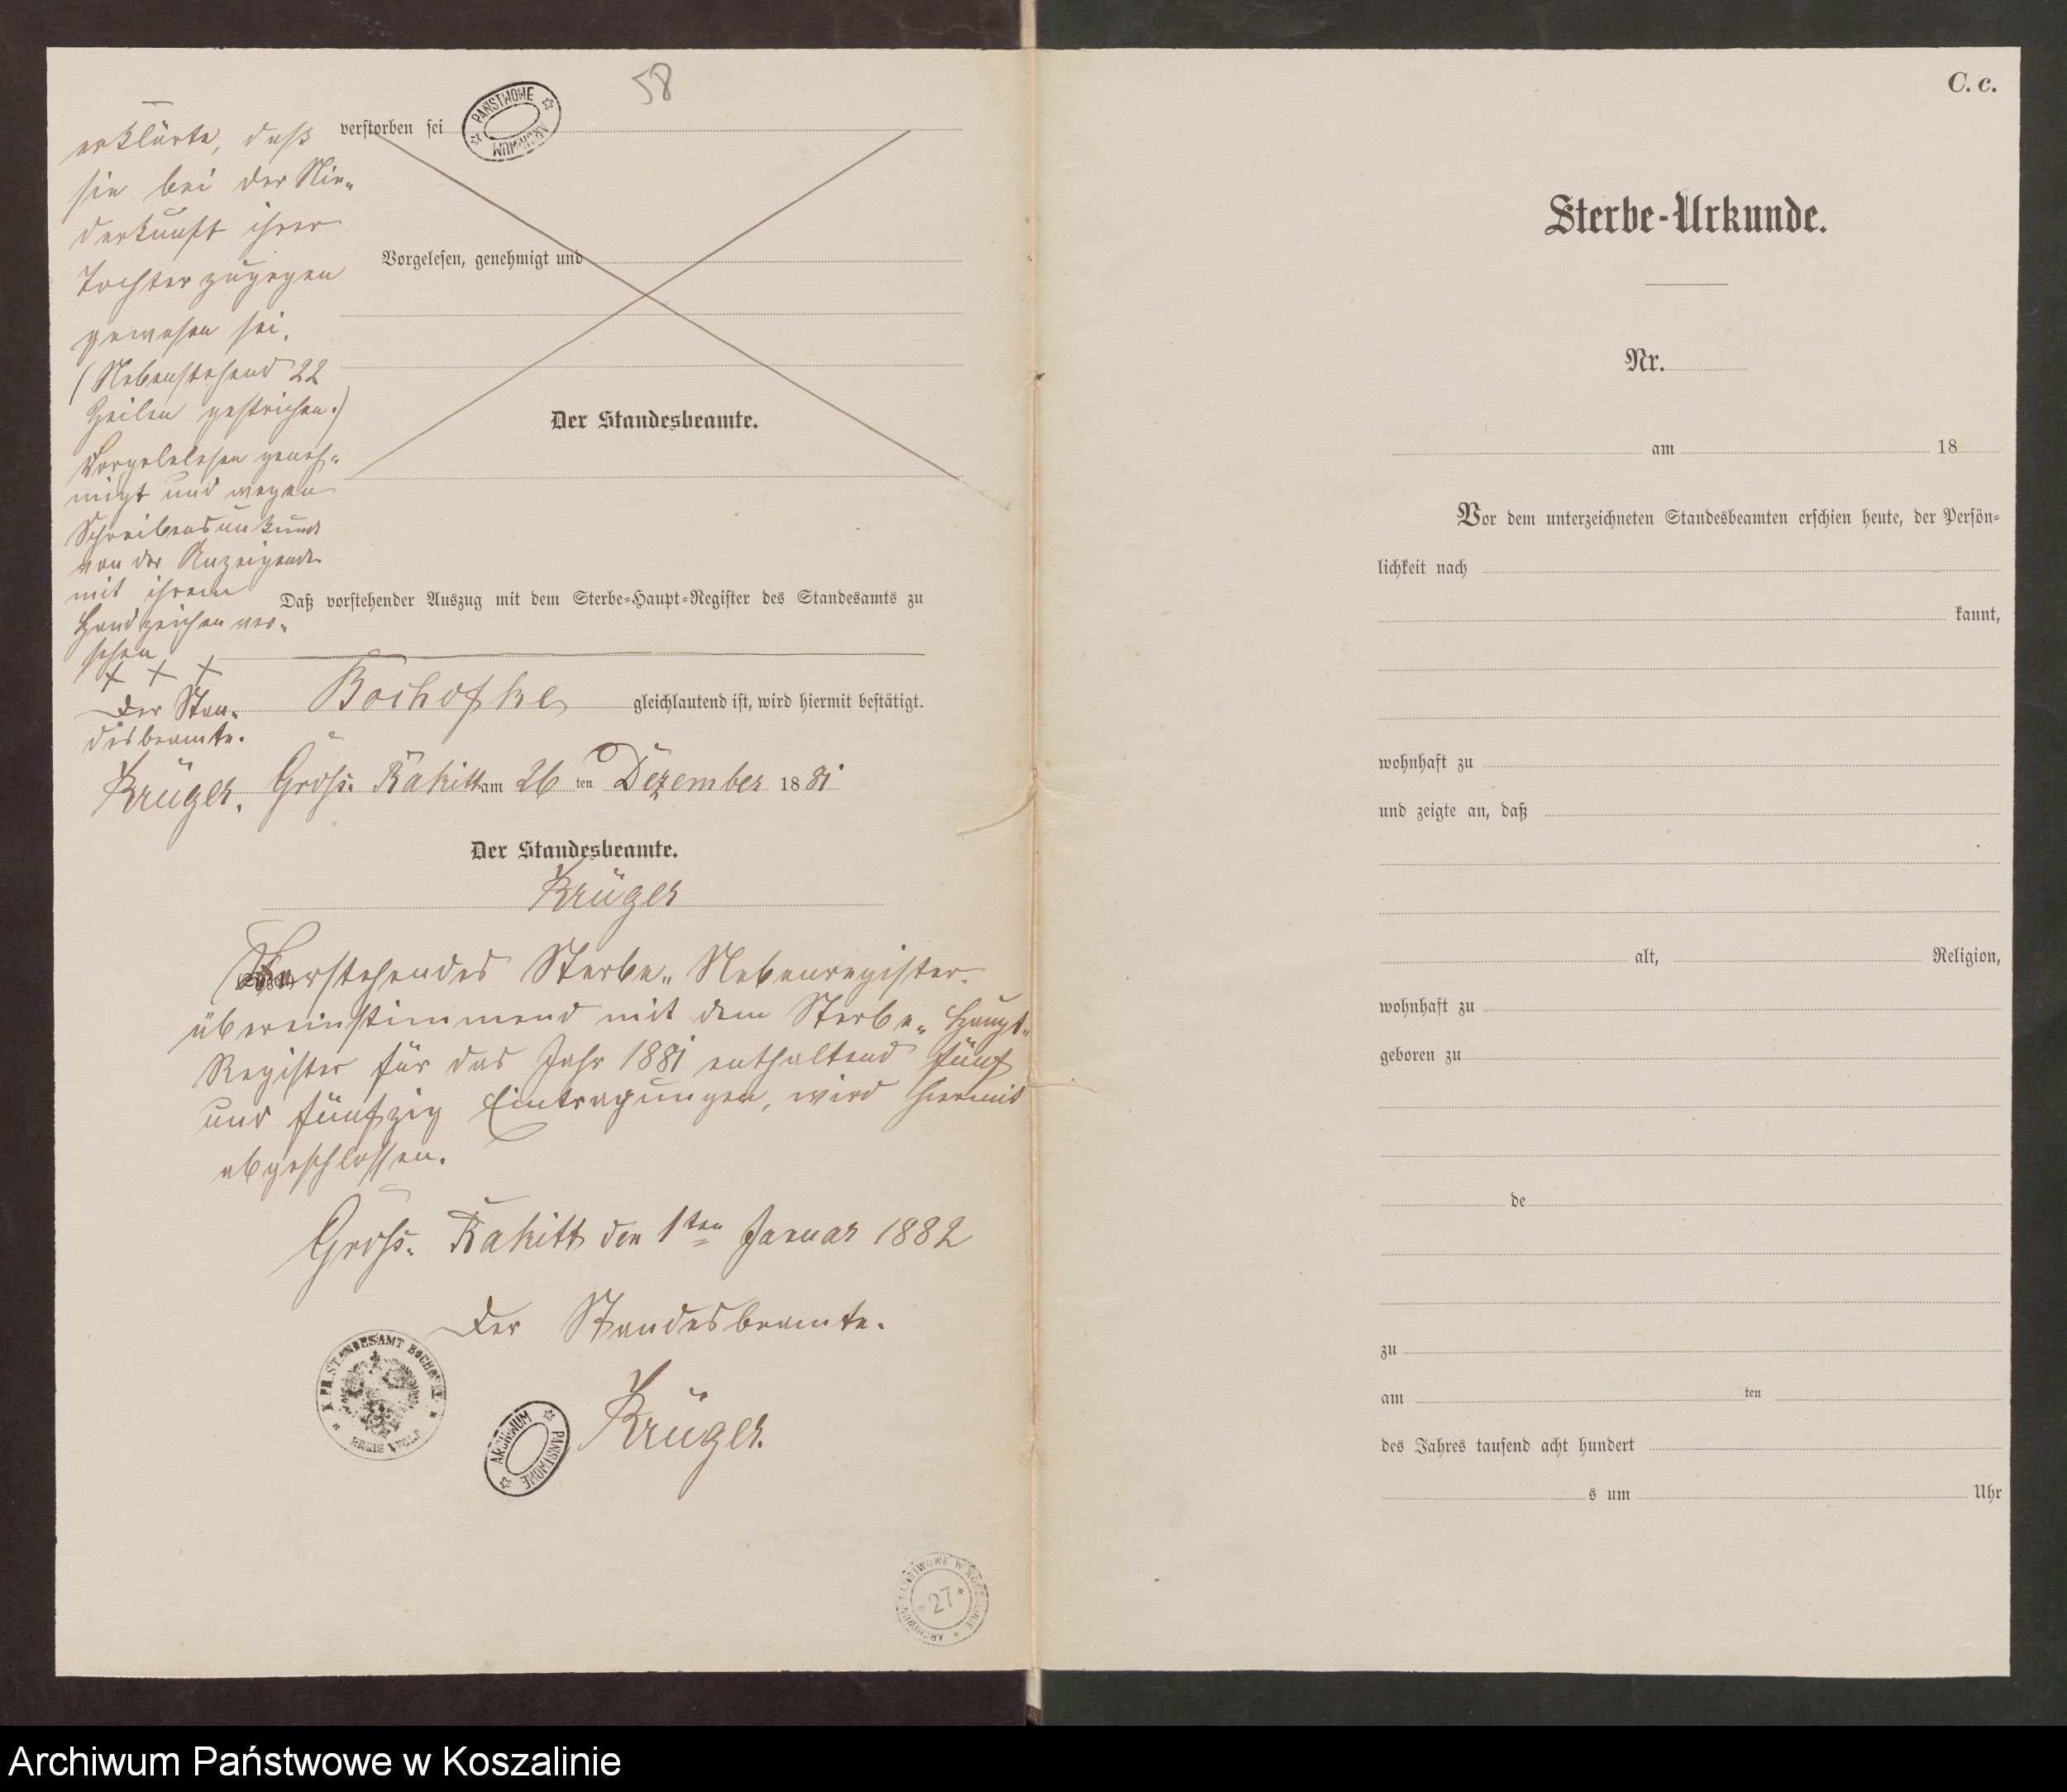 58
verstorben sei
PAŃSTWOWE ARCHIWUM
erklärte, daß
sie bei der Nie„
derkunft ihrer
Tochter zugegen
gewesen sei.
(Nebenstehend 22
Zeilen gestrichen.)
Vorgelelesen geneh„
migt und wegen
Schreibensunkunde
von der Anzeigenden
mit ihrem
Handzeichen ver„
sehen
+ + +
Der Stan„
desbeamte.
Krüger.
Vorgelesen, genehmigt und
Der Standesbeamte.
Daß vorstehender Auszug mit dem Sterbe-Haupt-Register des Standesamts zu
Bochofke gleichlautend ist, wird hiermit bestätigt.
Gross. Rakitt am 26 ten Dezember 1881
Der Standesbeamte.
Krüger
Vorstehendes Sterbe„ Nebenregister
übereinstimmend mit dem Sterbe„ Haupt„
Register für das Jahr 1881 enthaltend fünf
und fünfzig Eintragungen, wird hiermit
abgeschlossen.
Gross. Rakitt den 1ten Januar 1882
Der Standesbeamte.
Krüger.
K. PR. STANDESAMT BOCHOWKE
KREIS STOLP
ARCHIWUM PAŃSTWOWE
ARCHIWUM PAŃSTWOWE W KOSZALINIE
27
C. c.
Sterbe-Urkunde.
Nr.
am 18
Vor dem unterzeichneten Standesbeamten erschien heute, der Persön-
lichkeit nach
kannt,
wohnhaft zu
und zeigte an, daß
alt, Religion,
wohnhaft zu
geboren zu
de
zu
am ten
des Jahres tausend acht hundert
s um Uhr
Archiwum Państwowe w Koszalinie